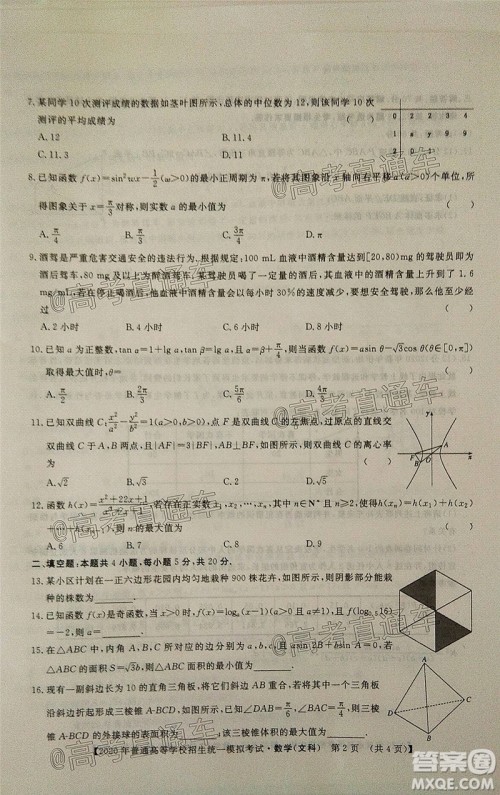 7. 某同学10次测评成绩的数据如茎叶图所示,总体的中位数为12,则该同学10次
测评的平均成绩为 ( )
0 2 2 3 4
1 x y 9 9
2
A. 12 B. 11.4
C. 11.3 D. 11.1
8. 已知函数 f(x)=sin²ωx-1/2(ω>0)的最小正周期为π/2,若将其图象沿x轴向右平移a(a>0)个单位,所
得图象关于x=π/3对称,则实数a的最小值为 ( )
A. π/4 B. π/3 C. 3π/4 D. π
9. 酒驾是严重危害交通安全的违法行为.根据规定,100 mL血液中酒精含量达到[20,80)mg的驾驶员即为
酒后驾车,80 mg及以上为醉酒驾车.某驾驶员喝了一定量的酒后,其血液中的酒精含量上升到了1.6
mg/mL,若在停止喝酒后,他血液中酒精含量会以每小时30%的速度减少,要想安全驾驶,那么他至少经过
( )
A. 2小时 B. 4小时 C. 6小时 D. 8小时
10. 已知a为正整数,tan α=1+lg a,tan β=lg a,且α=β+π/4,则当函数f(θ)=asin θ-√3cos θ(θ∈[0,π])
取得最大值时,θ= ( )
A. π/2 B. 2π/3 C. 5π/6 D. 4π/3
11. 已知双曲线C:x²/a²-y²/b²=1(a>0,b>0),点F是双曲线的左焦点,过原点的直线交
双曲线C于A,B两点,且 ,则双曲线C的离心率
为 ( )
A. √2 B. √3 C. 2 D. √5
12. 函数h(x)=(x²+22x+1)/x,若存在正实数x₁,x₂,…,xₙ,其中n∈N*且n≥2,使得h(xₙ)=h(x₁)+h(x₂)
,则n的最大值为 ( )
A. 6 B. 7 C. 8 D. 9
二、填空题:本题共4小题,每小题5分,共20分.
13. 某小区计划在一正六边形花园内均匀地栽种900株花卉,如图所示,则阴影部分能栽
种的株数为 .
14. 已知函数f(x)是奇函数,当x>0时,f(x)=logₐ(x+1)(a>0且a≠1),若f(log₀.₅16)
=-2,则a= .
15. △ABC中,角A,B,C所对的边分别为a,b,c,且asin 2B+bsin A=0,若
△ABC的面积S=√3b,则△ABC面积的最小值为 .
16. 现有一副斜边长为10的直角三角板,将它们的斜边AB重合,其中一个三角板
沿斜边折起形成三棱锥A-BCD,如图所示,
A-BCD的外接球的表面积为 ;三棱锥A-BCD体积的最大值为
2020年普通高等学校招生统一模拟考试·数学(文科) 第2页 (共4页)
@高考直通车
答案圈
MXQE.COM